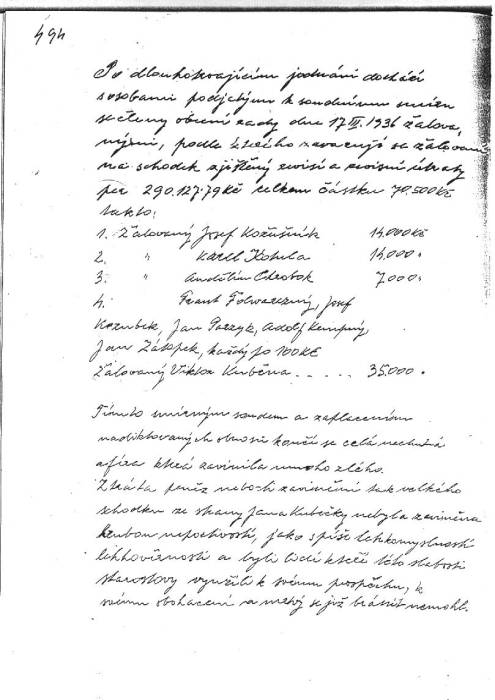 494
Po dlouhotrvajícím jednání dochází
s osobami podjetým k soudnímu smíru
se členy obecní rady dne 17 III. 1936 žalova,
nými, podle kterého zavazují se žalovaní
na schodek zjištěný revisí a revisní útraty
per 290.127.79 Kč celkem částku 70.500 Kč
takto:
1. Žalovaný Josef Kožušník 14.000 Kč
2. " Karel Kotula 14.000.
3. " Andělín Chrobok 7000.
4. Frant Folwarczný, Josef
Kozubek, Jan Parzyk, Adolf Kempný,
Jan Zátopek, každý po 100 Kč
Žalovaný Viktor Kuběna . . . . . 35.000.
Tímto smírným soudem a zaplacením
nadiktovaných obnosů končí se celá nechutná
aféra která zavinila mnoho zlého.
Ztráta peněz neboli zavinění tak velkého
schodku ze strany Jana Kubečky nebyla zaviněna
hrubou nepoctivostí, jako spíše lehkomyslností
lehkověrností a byli lidé kteří této slabosti
starostovy využili k svému prospěchu, k
svému obohacení a mrtvý se již brániti nemohl.